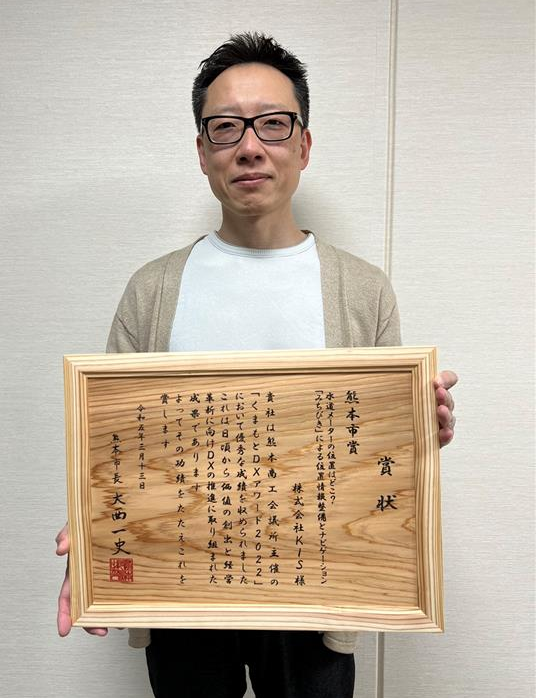 賞状
熊本市賞
水道メーターの位置はどこ?
「みちびき」による位置情報整備とナビゲーション
株式会社KIS様
貴社は熊本商工会議所主催の
「くまもとDXアワード2022」
において優秀な成績を収められました
これは日頃から価値の創出と経営
革新に向けDXの推進に取り組まれた
成果であります
よってその功績をたたえこれを
賞します
令和五年三月十三日
熊本市長 大西一史